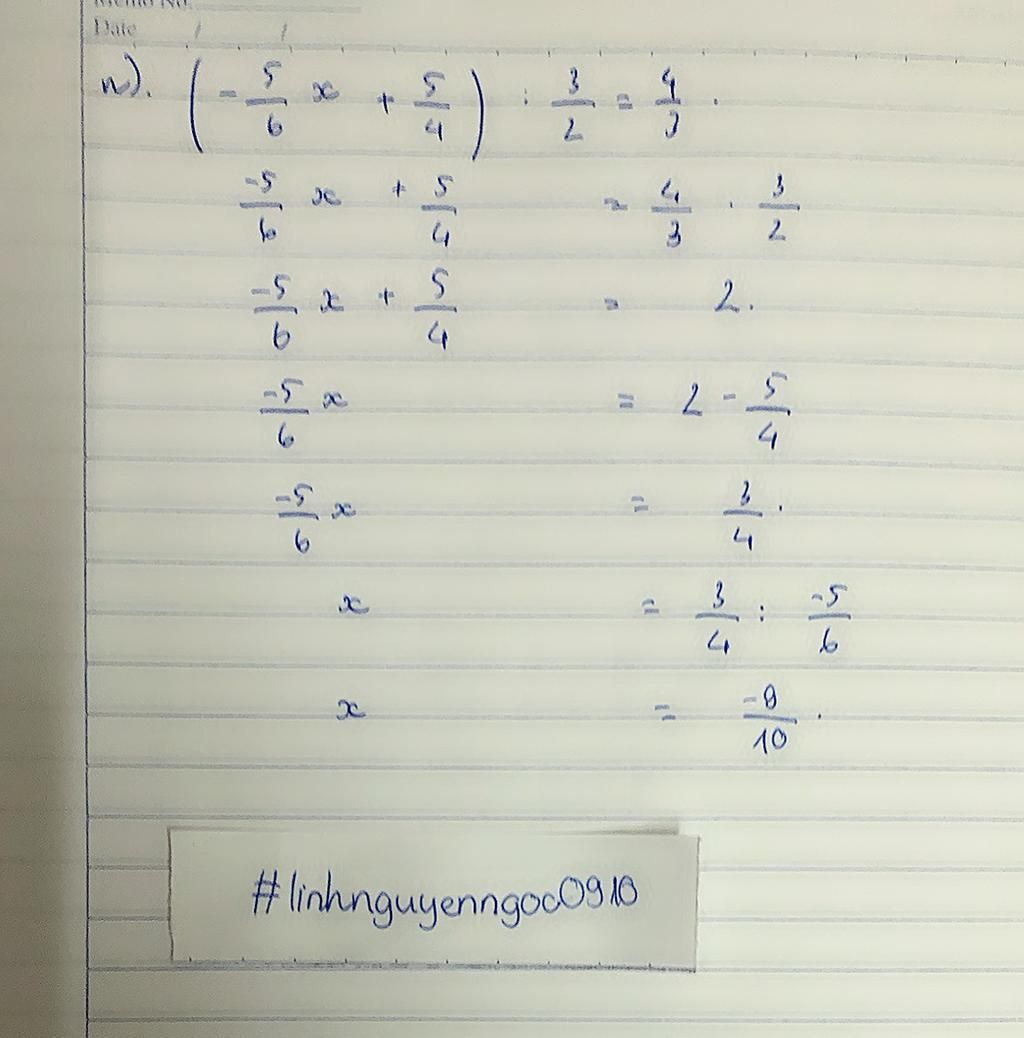 Memo No.
Date / /
n). (-5/6 x + 5/4) : 3/2 = 4/3 .
-5/6 x + 5/4 = 4/3 . 3/2
-5/6 x + 5/4 = 2.
-5/6 x = 2 - 5/4
-5/6 x = 3/4 .
x = 3/4 : -5/6
x = -9/10 .
#linhnguyenngoc0910